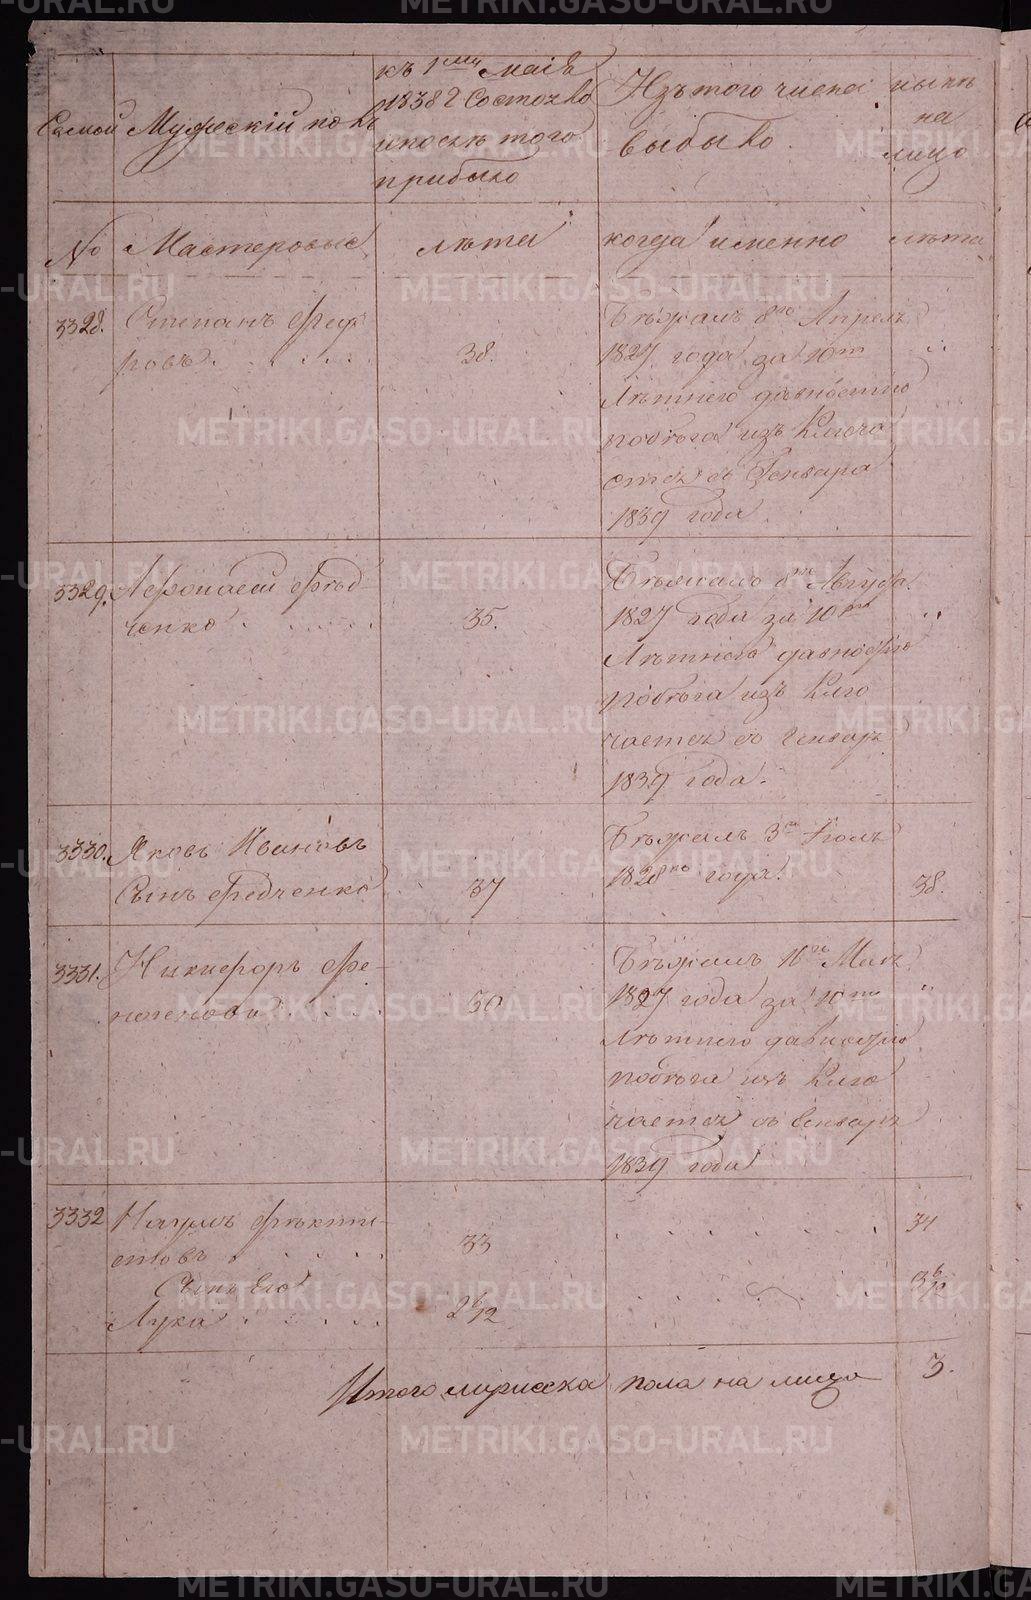 Семей Мужескій полъ
къ 1му маія 1838 г. состояло и послѣ того прибыло
Изъ того числа выбыло.
нынѣ на лицо
№ Мастеровые лѣта когда именно лѣта
3328. Степанъ Федо
ровъ . . . . . 38.
Бѣжалъ 8го Апрелѣ
1827 года за 10ти
Лѣтнею давностью
побѣга изъ Ключа
ется въ Генвара
1839 года.
3329. Аѳонасей Федь
ченко . . . . . 35.
Бѣжалъ 8го Августа
1827 года за 10ти
Лѣтнею давностью
побѣга изъ Клю
чается въ Генварѣ
1839 года.
3330. Яковъ Ивановъ
Сынъ Федченко 37
Бѣжалъ 3го Іюлѣ
1828го года. 38.
3331. Никифоръ Фе-
ногеновъ . . . . 50
Бѣжалъ 16го Маѣ
1827 года за 10ти
Лѣтнею давностью
побѣга изъ Клю
чается въ Генварѣ
1839 года
3332 Наумъ Фек
стовъ . . . . 33 34
Сынъ Его
Лука . . . . 2 6/12 3 6/12
Итого мужеска пола на лицо 3.
METRIKI.GASO-URAL.RU